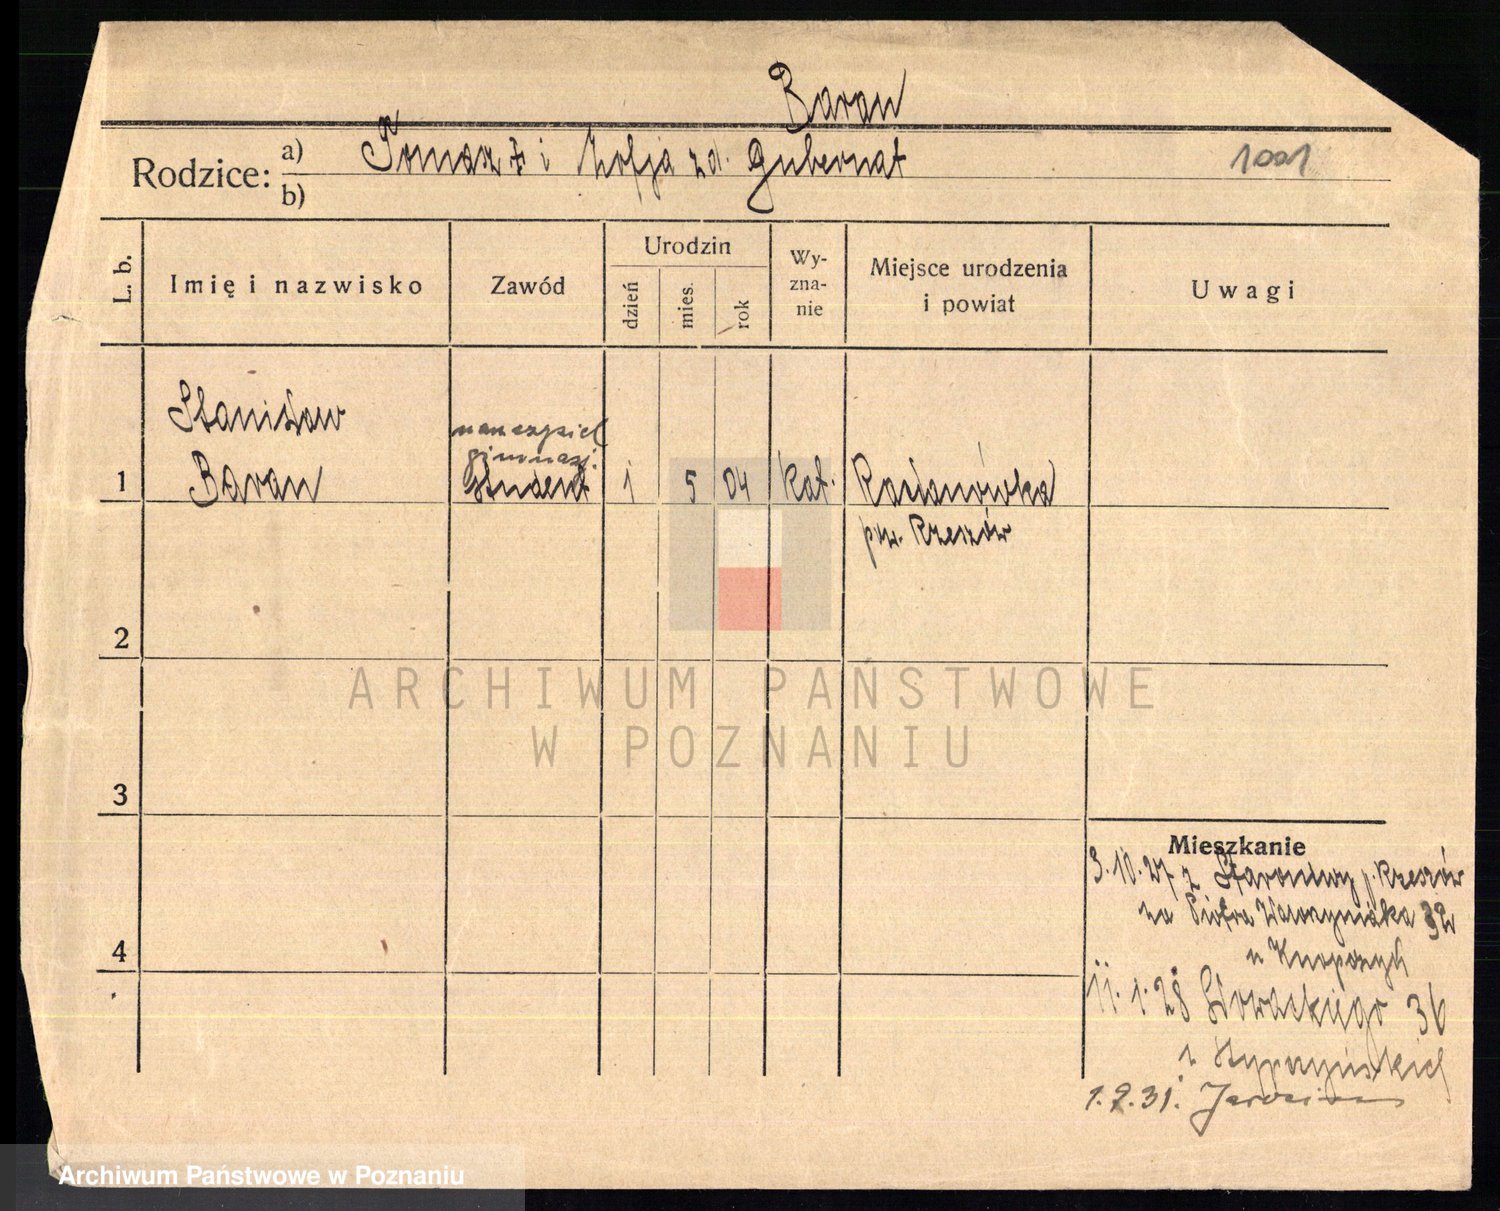 Baran
Rodzice: a) Tomasz † i Zofja zd. Gubernat 1001
b)
L. b. Imię i nazwisko Zawód Urodzin dzień mies. rok Wy-zna-nie Miejsce urodzenia i powiat Uwagi
Stanisław nauczyciel
gimnazj.
1 Baran student 1 5 04 kat. Racławówka
pow. Rzeszów
2
ARCHIWUM PAŃSTWOWE
W POZNANIU
3
Mieszkanie
3.10.27 z Staroniwy p. Rzeszów
na Piotra Wawrzyniaka 32
4
u
11.1.28 Słowackiego 36
1.9.31.
Archiwum Państwowe w Poznaniu